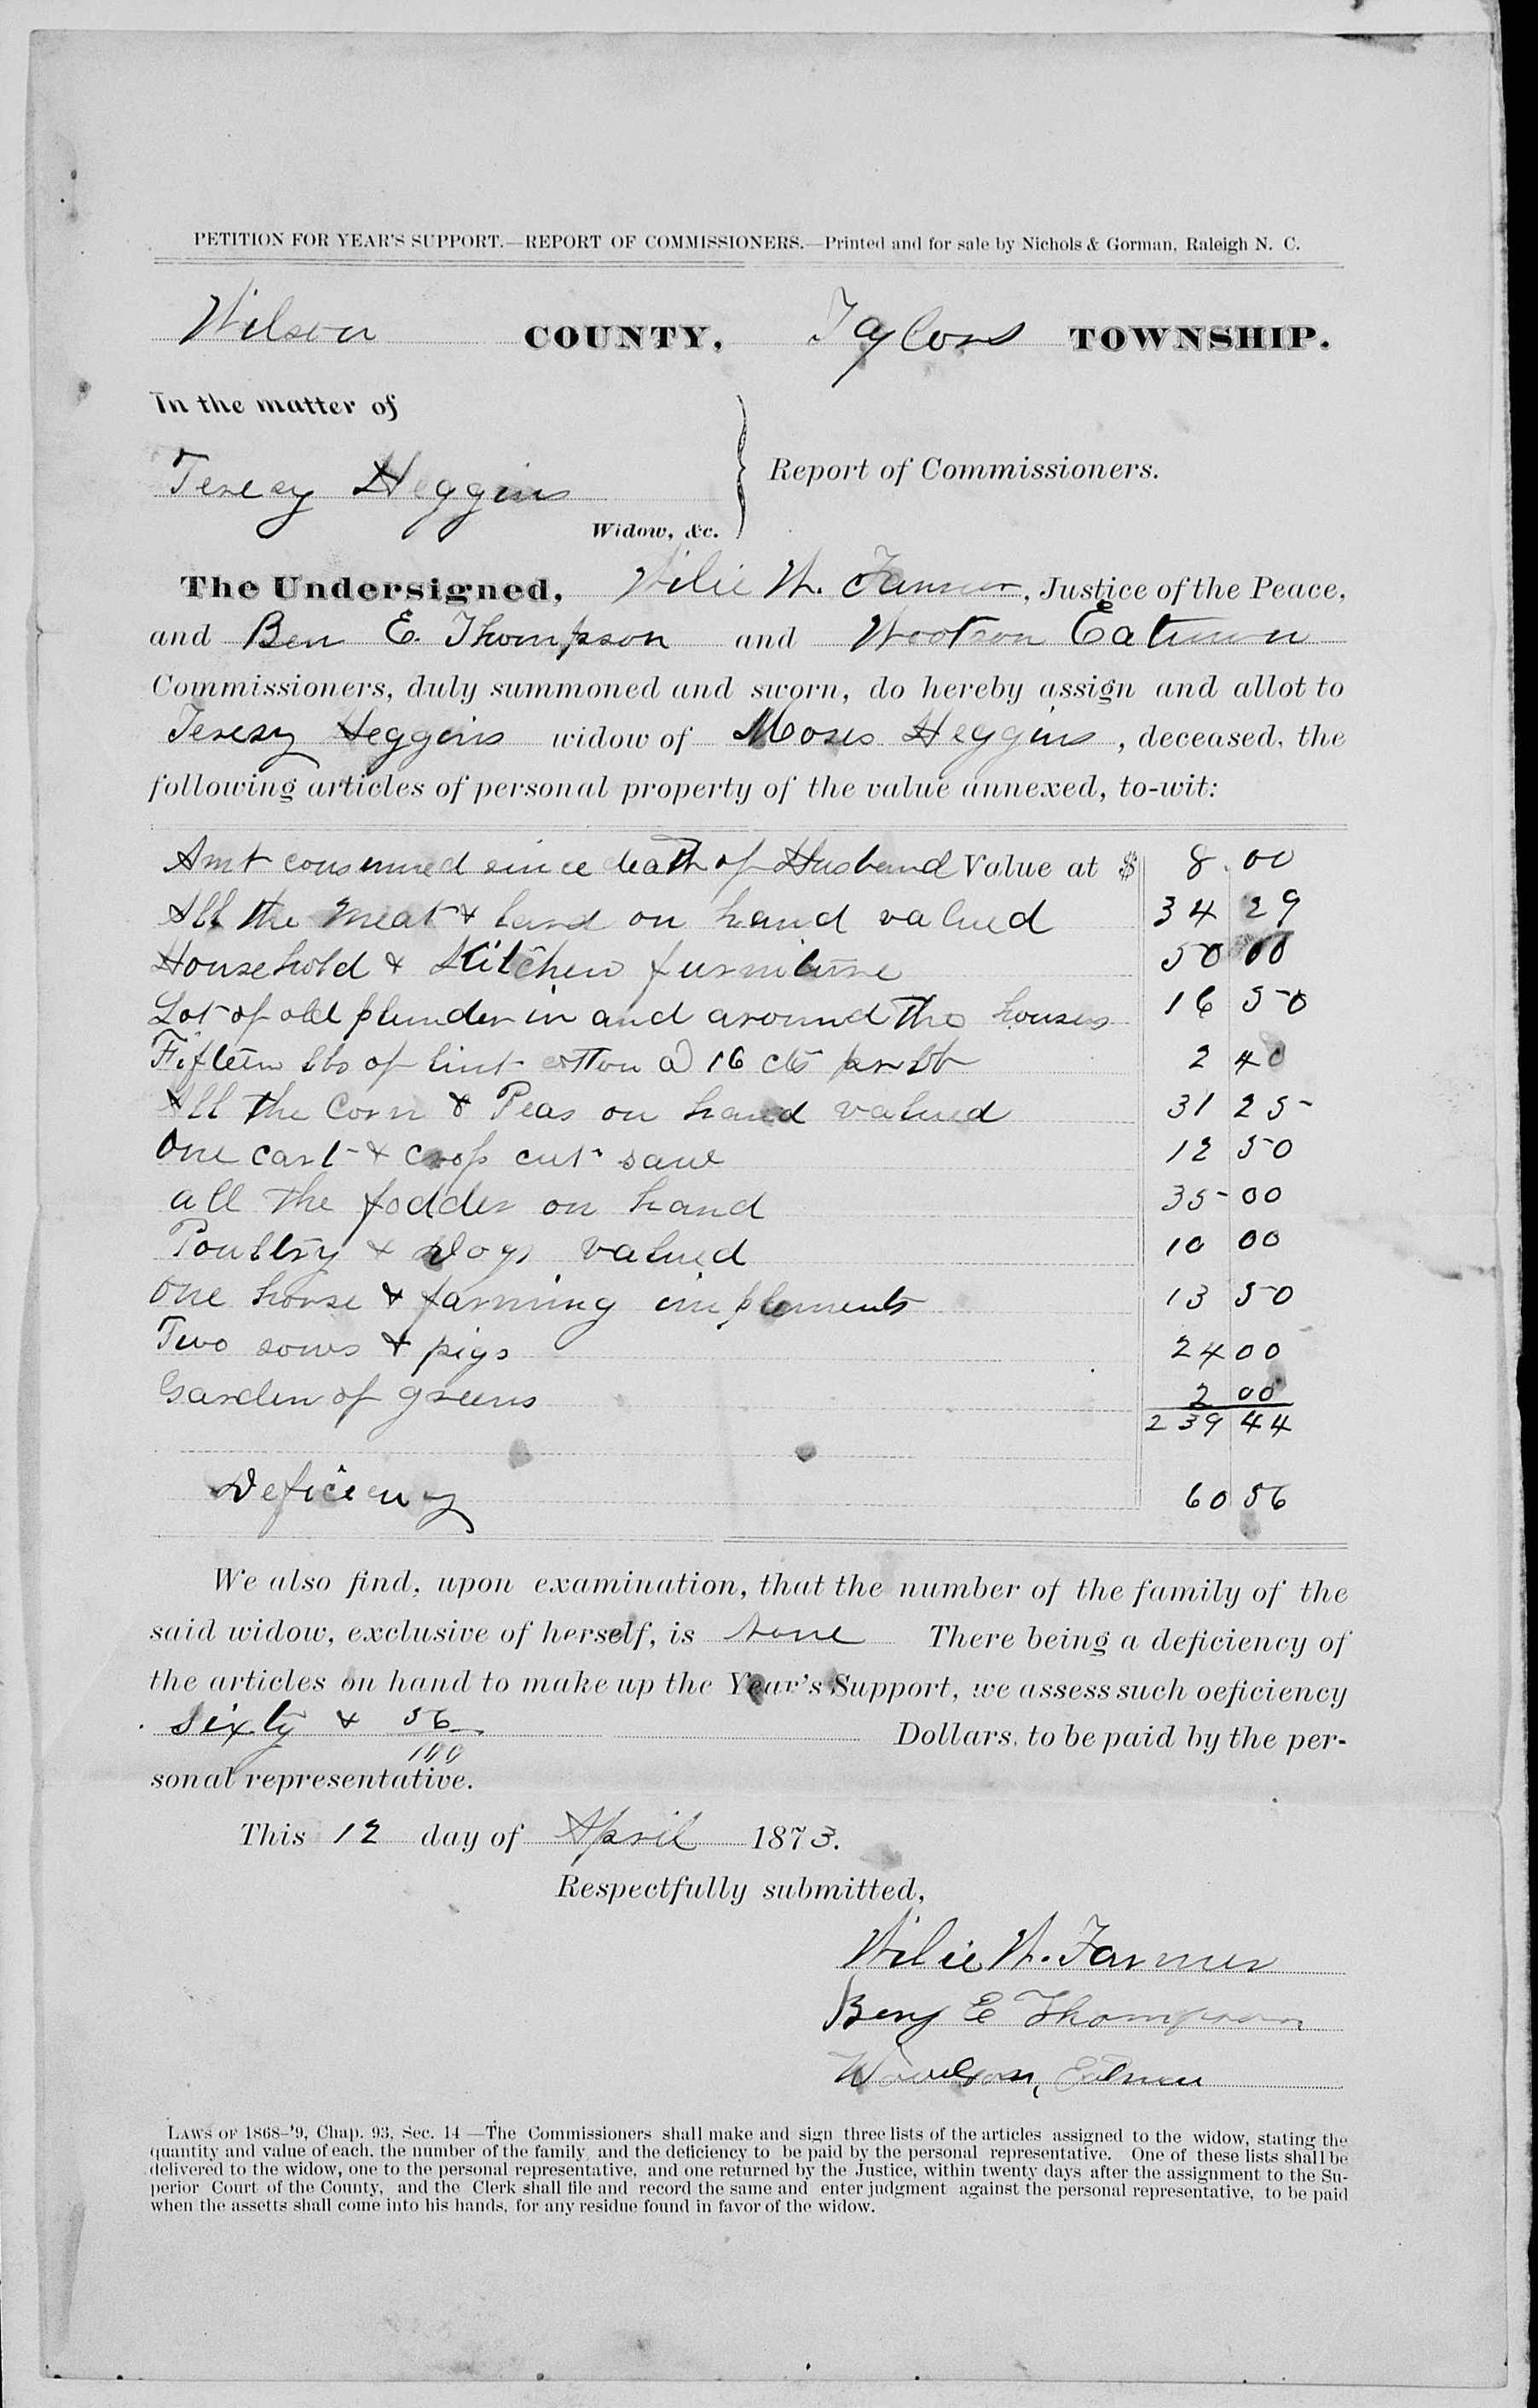 PETITION FOR YEAR'S SUPPORT.—REPORT OF COMMISSIONERS.—Printed and for sale by Nichols & Gorman, Raleigh N. C.
Wilson COUNTY, Taylors TOWNSHIP.
In the matter of
Teresy Heggins
Widow, &c.
Report of Commissioners.
The Undersigned, Wilie W. Farmer, Justice of the Peace,
and Ben E. Thompson and Wootson Eatmon
Commissioners, duly summoned and sworn, do hereby assign and allot to
Teresy Heggins widow of Moses Heggins, deceased, the
following articles of personal property of the value annexed, to-wit:
Amt consumed since death of Husband Value at $ 8.00
All the meat & lard on hand valued 34 29
Household & Kitchen furniture 50 00
Lot of old plunder in and around the houses 16 50
Fifteen lbs of lint cotton @ 16 cts per lb 2 40
All the Corn & Peas on hand valued 31 25
One cart & crop cut saw 12 50
all the fodder on hand 35 00
Poultry & Dogs valued 10 00
One horse & farming implements 13 50
Two sows & pigs 24 00
Garden of greens 2 00
239 44
Deficiency 60 56
We also find, upon examination, that the number of the family of the
said widow, exclusive of herself, is none There being a deficiency of
the articles on hand to make up the Year's Support, we assess such deficiency
Sixty & 56/100 Dollars, to be paid by the per-
sonal representative.
This 12 day of April 1873.
Respectfully submitted,
Wilie W. Farmer
Benj E Thompson
Eatmon
LAWS OF 1868-'9, Chap. 93, Sec. 14—The Commissioners shall make and sign three lists of the articles assigned to the widow, stating the
quantity and value of each, the number of the family, and the deficiency to be paid by the personal representative. One of these lists shall be
delivered to the widow, one to the personal representative, and one returned by the Justice, within twenty days after the assignment to the Su-
perior Court of the County, and the Clerk shall file and record the same and enter judgment against the personal representative, to be paid
when the assetts shall come into his hands, for any residue found in favor of the widow.